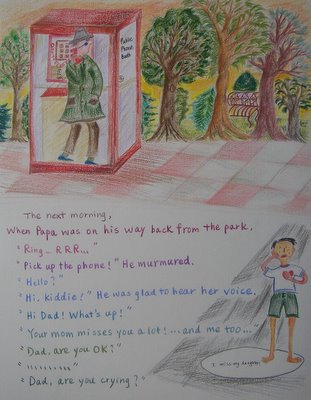 Public
Phone
Booth
The next morning,
When Papa was on his way back from the park,
"Ring... R.R.R..."
"Pick up the phone!" He murmured.
"Hello?"
"Hi, kiddie!" He was glad to hear her voice.
"Hi Dad! What's up!"
"Your mom misses you a lot! ...and me too..."
"Dad, are you OK?"
"........."
"Dad, are you crying?"
I miss my daughter